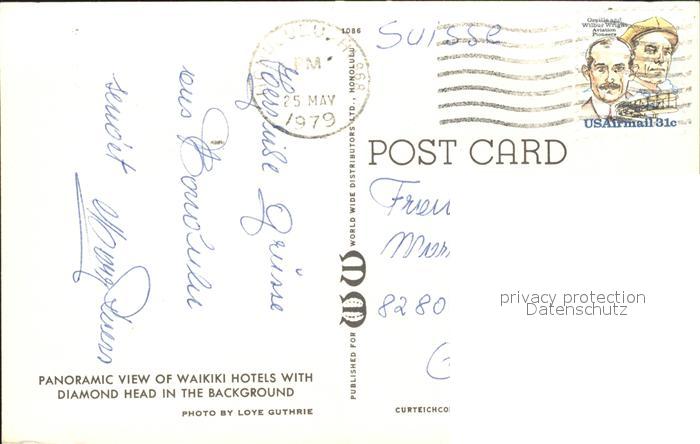 1086
SUISSE
Orville and
Wilbur Wright
Aviation
Pioneers
USAirmail 31c
PM
25 MAY
1979
POST CARD
Herzliche Grüsse
aus Honolulu
sendet
8280
privacy protection
Datenschutz
PUBLISHED FOR WW WORLD WIDE DISTRIBUTORS LTD., HONOLULU
PANORAMIC VIEW OF WAIKIKI HOTELS WITH
DIAMOND HEAD IN THE BACKGROUND
PHOTO BY LOYE GUTHRIE
CURTEICHCO